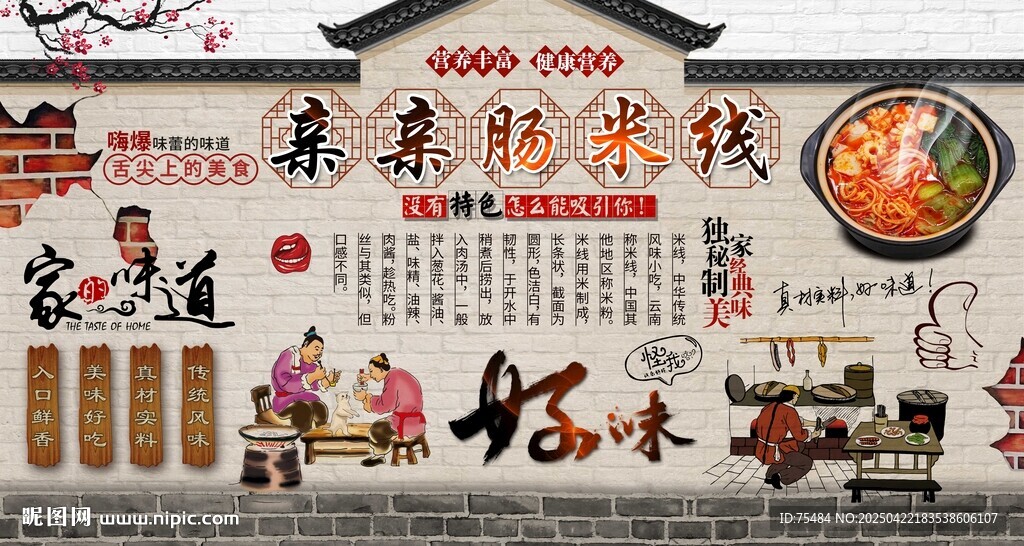 营养丰富 健康营养
亲亲肠米线
没有特色怎么能吸引你！
嗨爆味蕾的味道
舌尖上的美食
家的味道
THE TASTE OF HOME
入口鲜香
美味好吃
真材实料
传统风味
米线，中华传统
风味小吃，云南
称米线，中国其
他地区称米粉。
米线用米制成，
长条状，截面为
圆形，色洁白，有
韧性，于开水中
稍煮后捞出，放
入肉汤中，一般
拌入葱花、酱油、
盐、味精、油辣、
肉酱，趁热吃。粉
丝与其类似，但
口感不同。
独家
秘制
经典
美味
真材实料，好味道！
怪我
好味
昵图网 www.nipic.com
ID:75484 NO:20250422183538606107